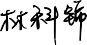 林科锦